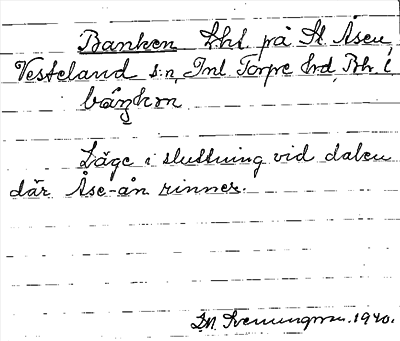 Banken Lht. på St. Åsen,
Vesteland s:n, Inl Torpe hd, Boh. l.
båŋkɔn
Läge i sluttning vid dalen
där Åse-ån rinner.
1940.